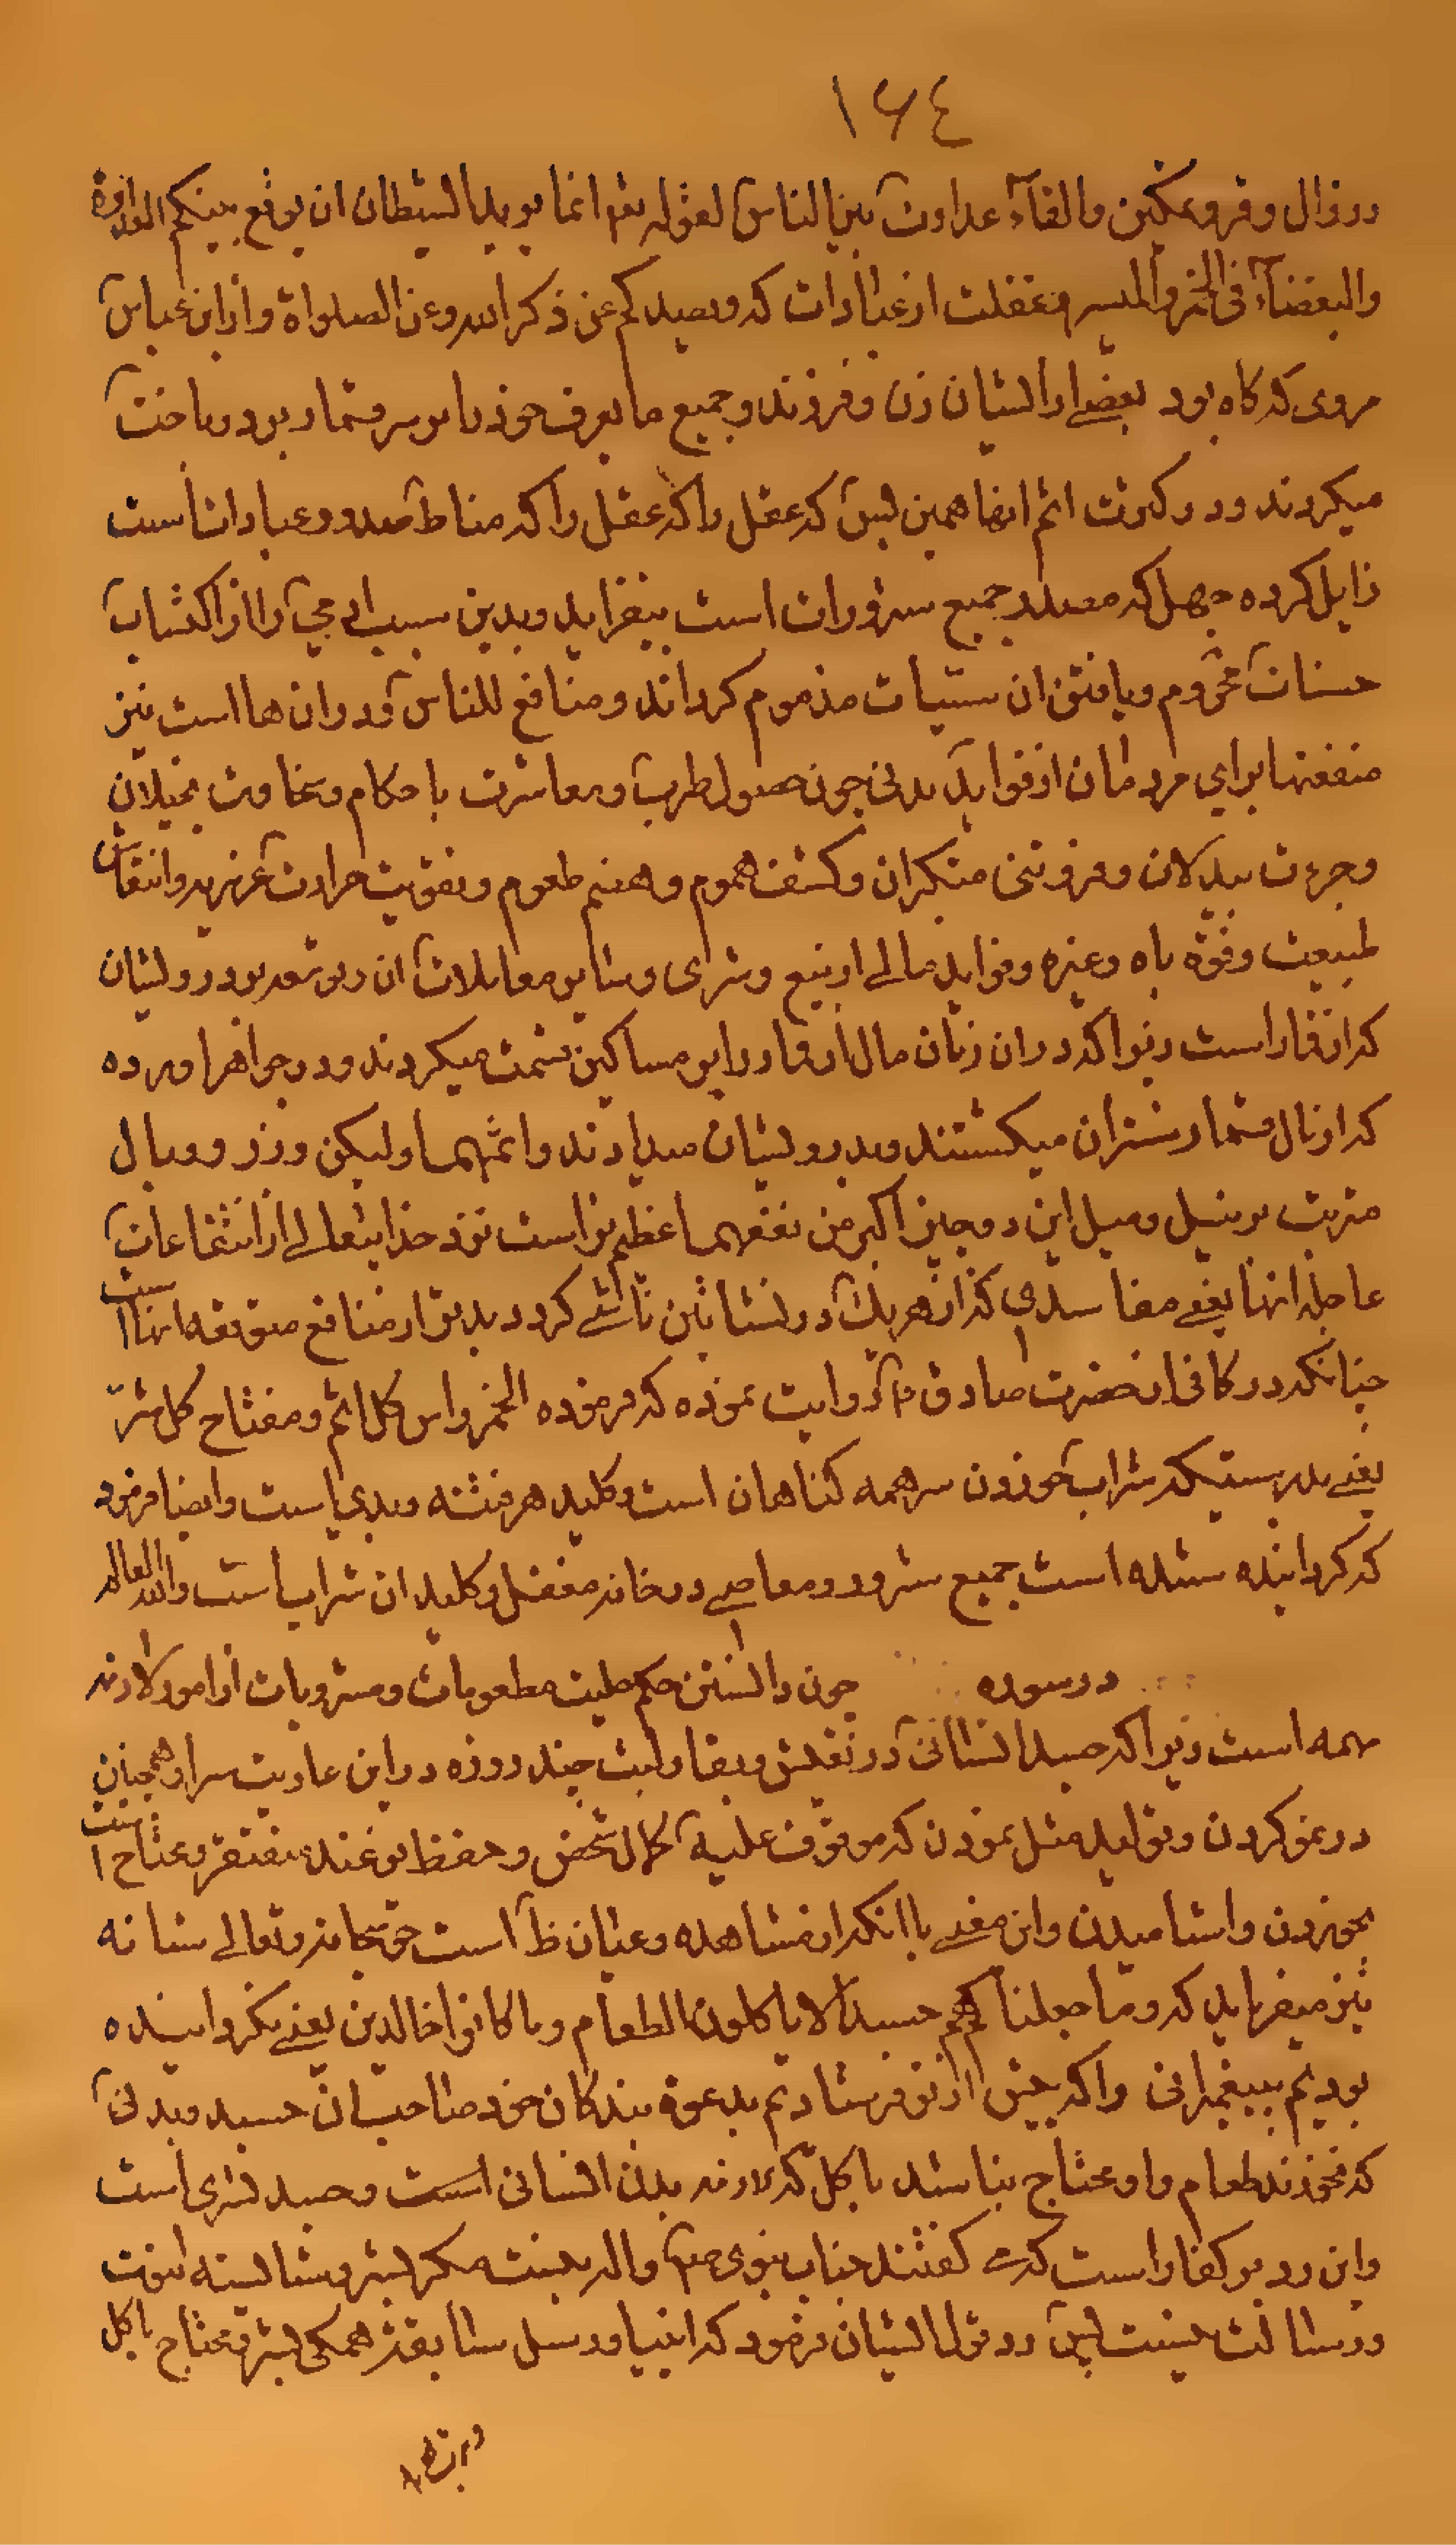 ۱۶٤
در زوال وقر وتمکین والقآء عداوت بین الناس لقوله تعم انما یرید الشیطان ان یوقع بینکم العداوة
والبغضآء فی الخمر والمیسر وغفلت از عبادات که ویصدکم عن ذکر الله وعن الصلواة واز ابن عباس
مروی که کاه بود بعضے از ایشان زن وفرزند وجمیع ما یعرف خود را بر سر قمار برد وباخت
میکردند ودر کثرت اثم انها همین بس که عقل را که عقل را که مناط صدور عبادات است
زایل کرده جهل که مصدر جمیع شرورات است بیفزاید وبدین سبب ادمی را از اکتساب
حسنات محروم وبیافتن ان سیئات مذموم کرداند ومنافع للناس ودر ان ها است نیز
منفعتها برای مردمان از فواید بدنی چون حصول طرب ومعاشرت با حکام وسخاوت بخیلان
وجرءت بیدلان وفروتنی متکبران وکشف هموم وهضم طعوم وتقویت حرارت غریزیه وانتعاش
طبیعت وقوّة باه وغیره وفواید مالے از بیع وشری وسایر معاملات ان وتوسعه بر درویشان
که از قمار است زیرا که در ان زمان مال قمار را بر مساکین قسمت میکردند ودر جواهر اورده
که از مال قمار شتران میکشتند وبدرویشان میدادند واثمهما ولیکن وزر ووبال
مترتب بر نیل ومیل این دو چیز اکبر من نفعهما عظیم تر است نزد خدایتعالے از انتفاعات
عاجله انها یعنے مفاسدی که از هر یک در نشاتین ناشے کردد بدتر از منافع متوقعه انها است
چنانکه در کافی از حضرت صادق ع روایت نموده که فرموده الخمر راس کل اثم ومفتاح کل شر
یعنے بدرستیکه شراب خوردن سر همه کناهان است وکلید هر فتنه وبدی است وایضا فرمود
که کردانیده شده است جمیع شرور ومعاصے در خانه مقفل وکلید ان شراب است والله العالم
در سوره چون دانستن حکم حلیت مطعومات ومشروبات از امور لازمه
مهمه است زیرا که جسد انسانی در تعیش وبقا ولبث چند روزه در این عاریت سرا وهمچنان
در نمو کردن وتولید مثل نمودن که موقوف علیه کمال شخص وحفظ نوعند مفتقر ومحتاج است
بخوردن واشامیدن واین معنے با انکه از مشاهده وعیان ظ است حق سبحانه وتعالے شانه
نیز میفرماید که وما جعلناهم جسدا لا یاکلون الطعام وما کانوا خالدین یعنے نکردانیده
بودیم پیغمبرانی را که پیش از تو فرستادیم بدعوة بندکان خود صاحبان جسد وبدنی
که نخورند طعام را ومحتاج نباشند باکل که لازمه بدن انسانی است وجسد بشری است
واین رد بر کفار است که مے کفتند جناب نبوی ص واله نیست مکر بشر وشایسته نبوت
ورسالت نیست پس رد قول ایشان فرمود که انبیا ورسل سابقه همکی بشر ومحتاج باکل